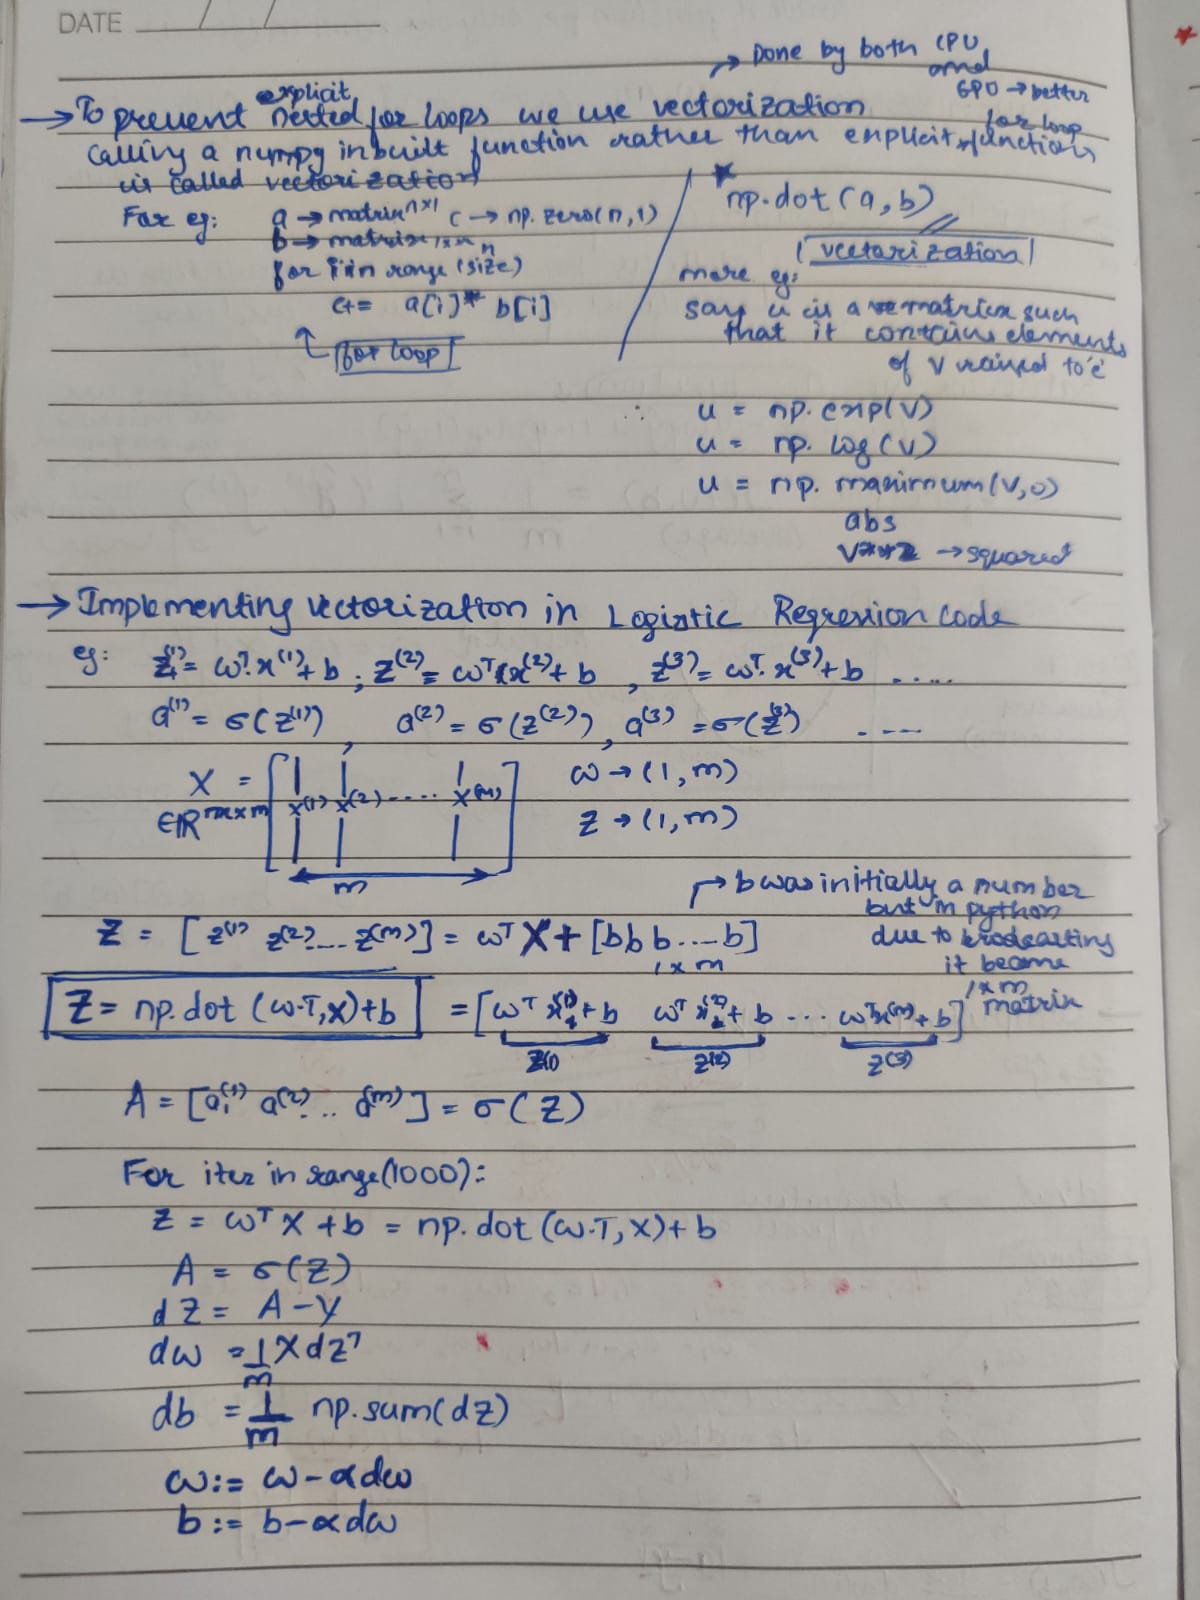 DATE
→ Done by both CPU
and
GPU → better
explicit
→ To prevent nested for loops we use vectorization
for loop
Calling a numpy inbuilt function rather than explicit functions
is called vectorization
For eg: a → matrix n×1 c → np.zero(n,1)
b → matrix 1×n
for i in range (size)
c+= a[i] * b[i]
↑ for loop
* np.dot(a,b)
vectorization
more eg:
say u is a matrix such
that it contains elements
of v raised to 'e'
∴ u = np.exp(v)
u = np.log(v)
u = np.maximum(v,0)
abs
v**2 → squared
→ Implementing vectorization in Logistic Regression code
eg: z⁽¹⁾ = wᵀ.x⁽¹⁾ + b ; z⁽²⁾ = wᵀx⁽²⁾ + b , z⁽³⁾ = wᵀ.x⁽³⁾ + b .....
a⁽¹⁾ = σ(z⁽¹⁾) , a⁽²⁾ = σ(z⁽²⁾) , a⁽³⁾ = σ(z⁽³⁾) ....
X = [x⁽¹⁾ x⁽²⁾ .... x⁽ᵐ⁾] w → (1,m)
∈ℝ z → (1,m)
m
→ b was initially a number
but in python
due to brodcasting
it became
1×m
matrix
Z = [z⁽¹⁾ z⁽²⁾ ... z⁽ᵐ⁾] = wᵀ X + [b b b .... b]
1×m
Z = np.dot (w.T,x)+b = [wᵀ x⁽¹⁾ + b wᵀ x⁽²⁾ + b ... wᵀx⁽ᵐ⁾ + b]
z⁽¹⁾ z⁽²⁾ z⁽³⁾
A = [a⁽¹⁾ a⁽²⁾ ... a⁽ᵐ⁾] = σ(Z)
For iter in range(1000):
Z = wᵀ X + b = np.dot (w.T,X)+b
A = σ(Z)
dZ = A - Y
dw = 1/m X dzᵀ
db = 1/m np.sum(dz)
w := w - αdw
b := b - αdw